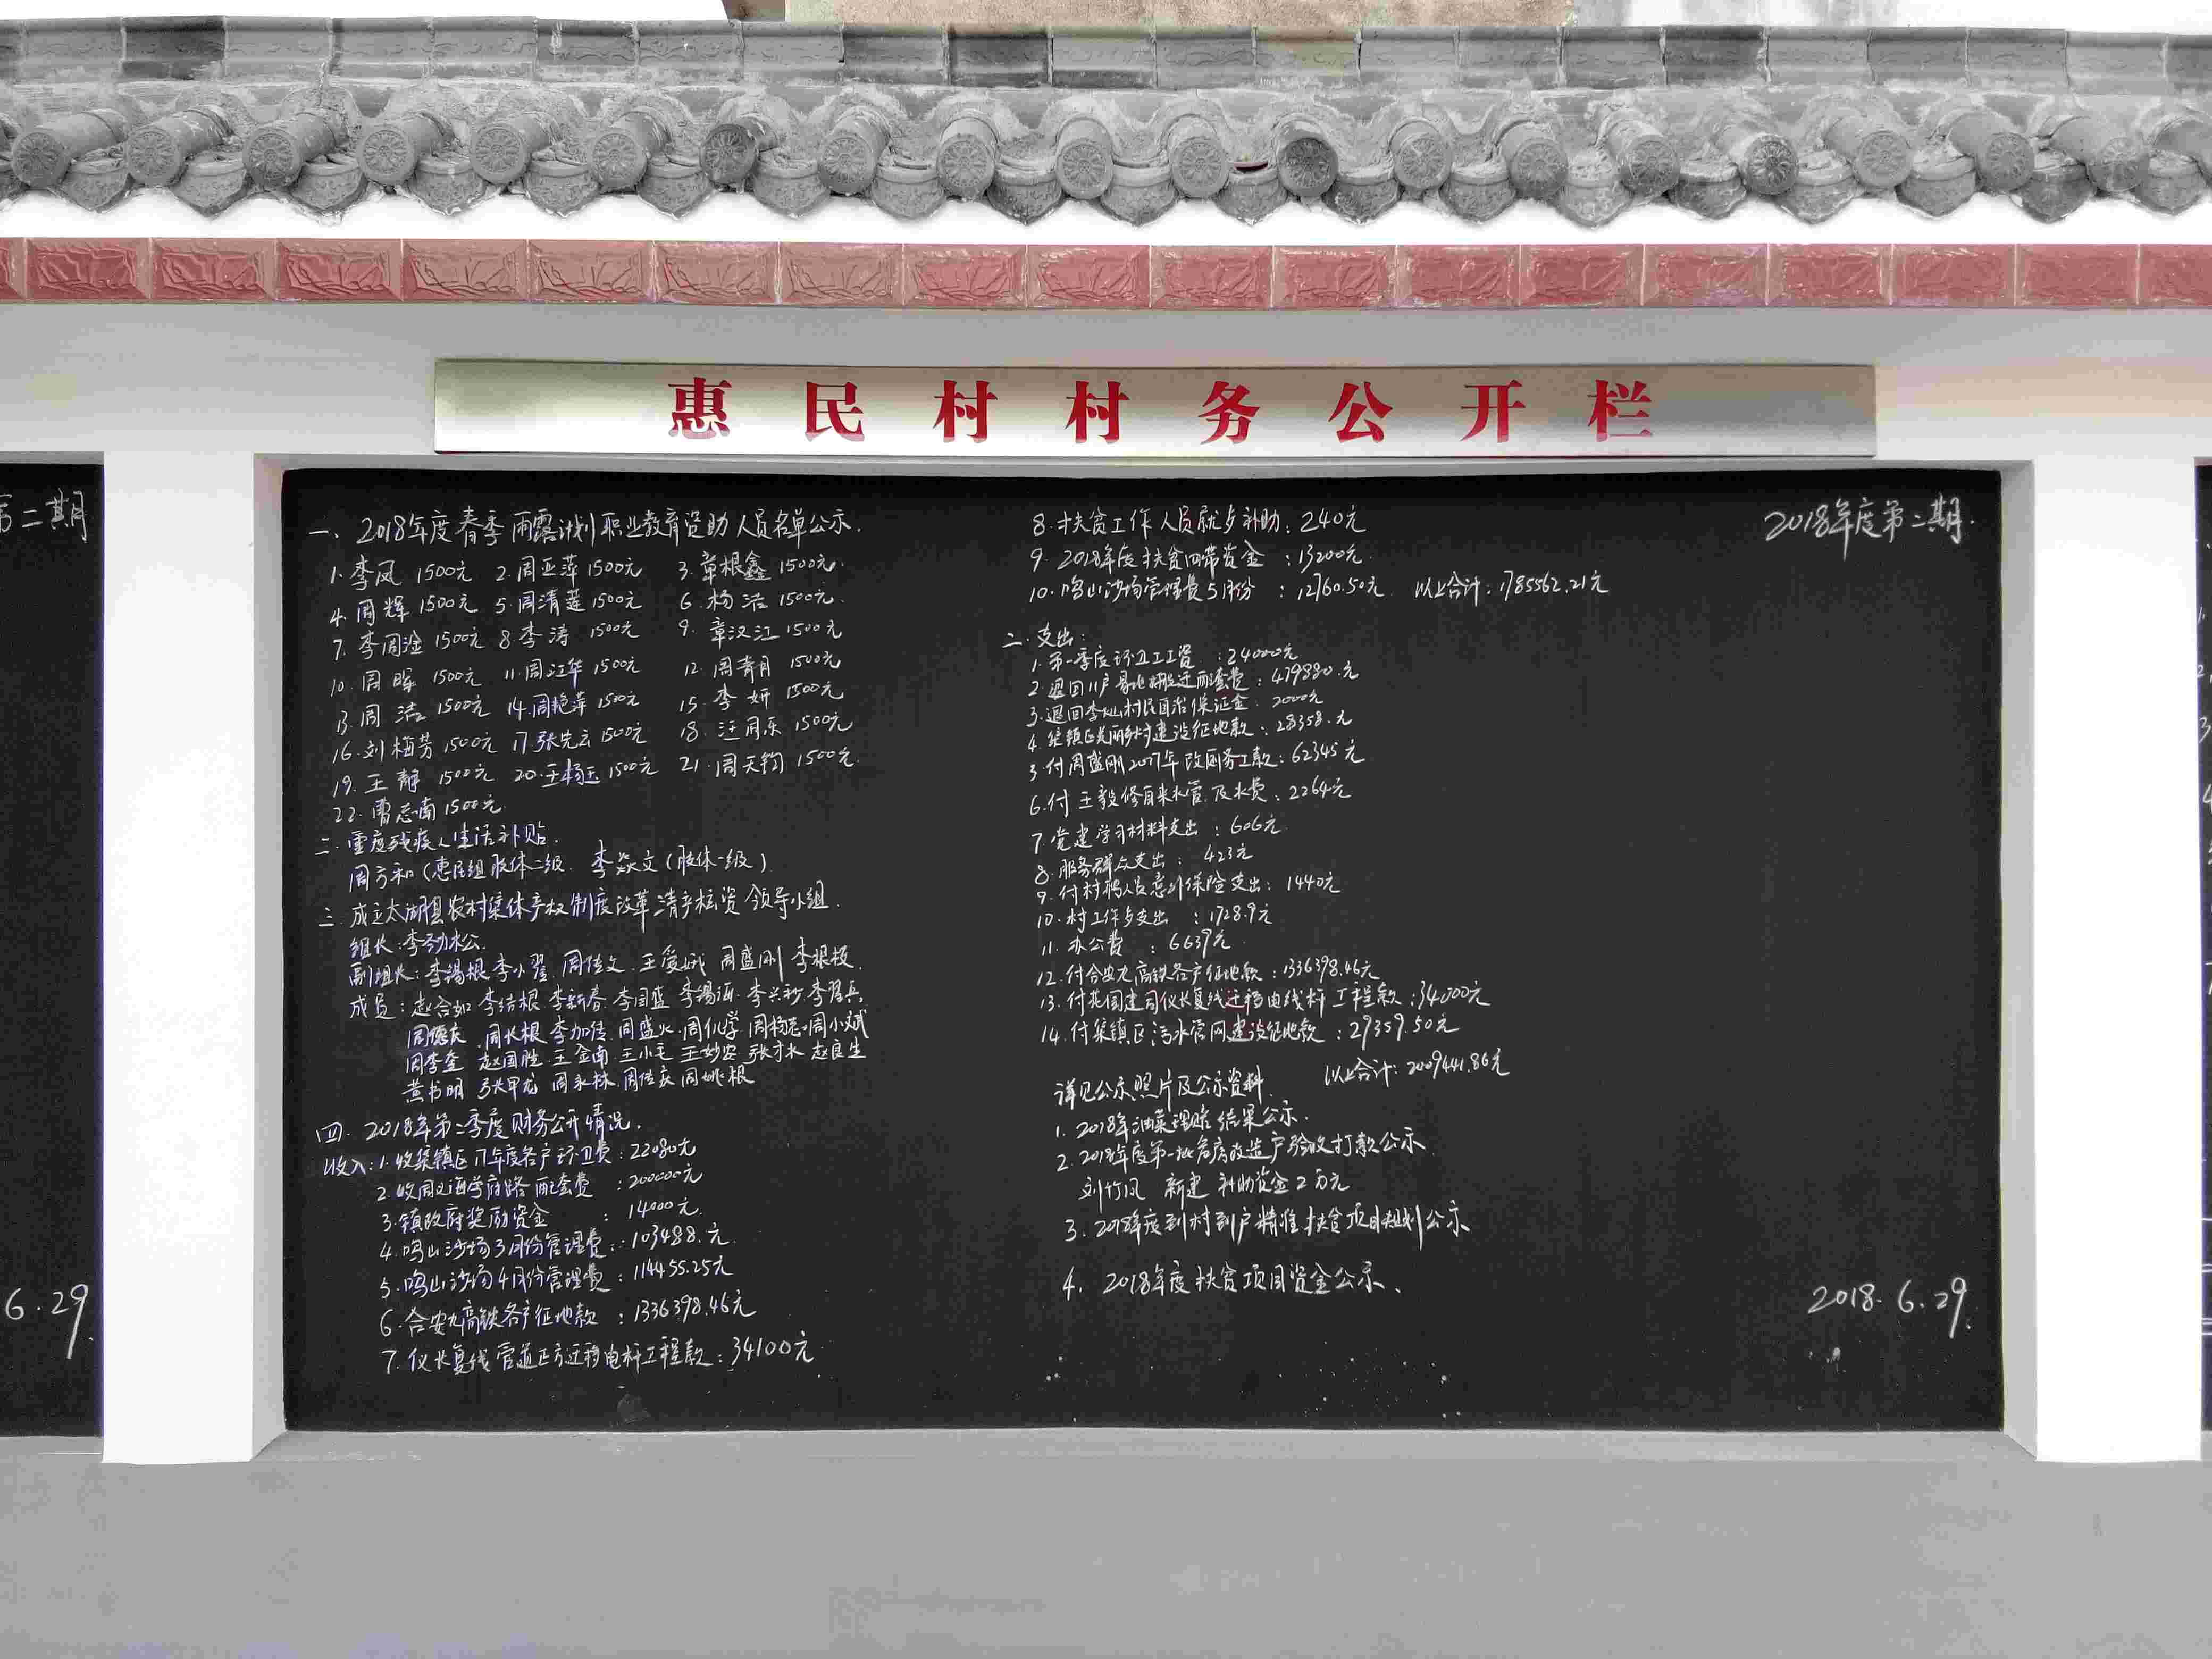 惠民村村务公开栏
第二期
6.29
2018年度第二期.
一、2018年度春季雨露计划职业教育资助人员名单公示.
1.李凤 1500元 2.周亚萍 1500元 3.章根鑫 1500元
4.周辉 1500元 5.周清莲 1500元 6.杨洁 1500元
7.李周淦 1500元 8.李涛 1500元 9.章汉江 1500元
10.周晖 1500元 11.周江华 1500元 12.周青月 1500元
13.周洁 1500元 14.周艳萍 1500元 15.李妍 1500元
16.刘梅芳 1500元 17.张先云 1500元 18.汪周乐 1500元
19.王静 1500元 20.王杨玉 1500元 21.周天钧 1500元
22.曹志南 1500元
二.重度残疾人生活补贴.
周方和(惠民组肢体二级. 李焱文(肢体一级)
三.成立太湖县农村集体产权制度改革清产核资领导小组.
组长:李劲松.
副组长:李锡根 李小翠 周结文 王爱娥 周盛刚 李根枝.
成员:赵合如 李结根 李新春 李国盛 李锡海 李兴 李
周德 周长根 李加传 周盛火 周仇学 周杨志 周小斌
周李奎 赵国胜 王金南 王小毛 王妙安 张才水 赵良生
黄书明 张甲龙 周永林 周传 周姚根
四.2018年第二季度财务公开情况.
收入:1.收集镇区17年度各户环卫费:22080元
2.收周文海学府路配套费:200000元
3.镇政府奖励资金:14000元.
4.鸣山沙场3月份管理费:103488.元.
5.鸣山沙场4月份管理费:114455.25元
6.合安九高铁各户征地款:1336398.46元
7.仪长复线管道正方迁移电杆工程款:34100元
8.扶贫工作人员就乡补助:240元
9.2018年度扶贫四带资金:13200元.
10.鸣山沙场管理费5月份:12760.50元 以上合计:1785562.21元
二.支出:
1.第一季度环卫工工资:24000元
2.退回11户易地搬迁配套费:479880.元
3.退回李灿村民自治保证金:2000元
4.集镇区美丽乡村建设征地款:28358.元
5.付周盛刚2017年改厕务工款:62345元
6.付王毅修自来水管及水费:2264元
7.党建学习材料支出:606元
8.服务群众支出:423元
9.付村聘人员意外保险支出:1440元
10.村工作乡支出:1728.9元
11.办公费:6639元
12.付合安九高铁各户征地款:1336398.46元
13.付范国建司仪长复线迁移电线杆工程款:34000元
14.付集镇区污水管网建设征地款:29359.50元
以上合计:2009441.86元
详见公示照片及公示资料
1.2018年油菜理赔结果公示.
2.2018年度第一批危房改造户验收打款公示
刘竹风 新建 补助资金2万元
3.2018年度到村到户精准扶贫项目规划公示
4.2018年度扶贫项目资金公示、
2018.6.29.